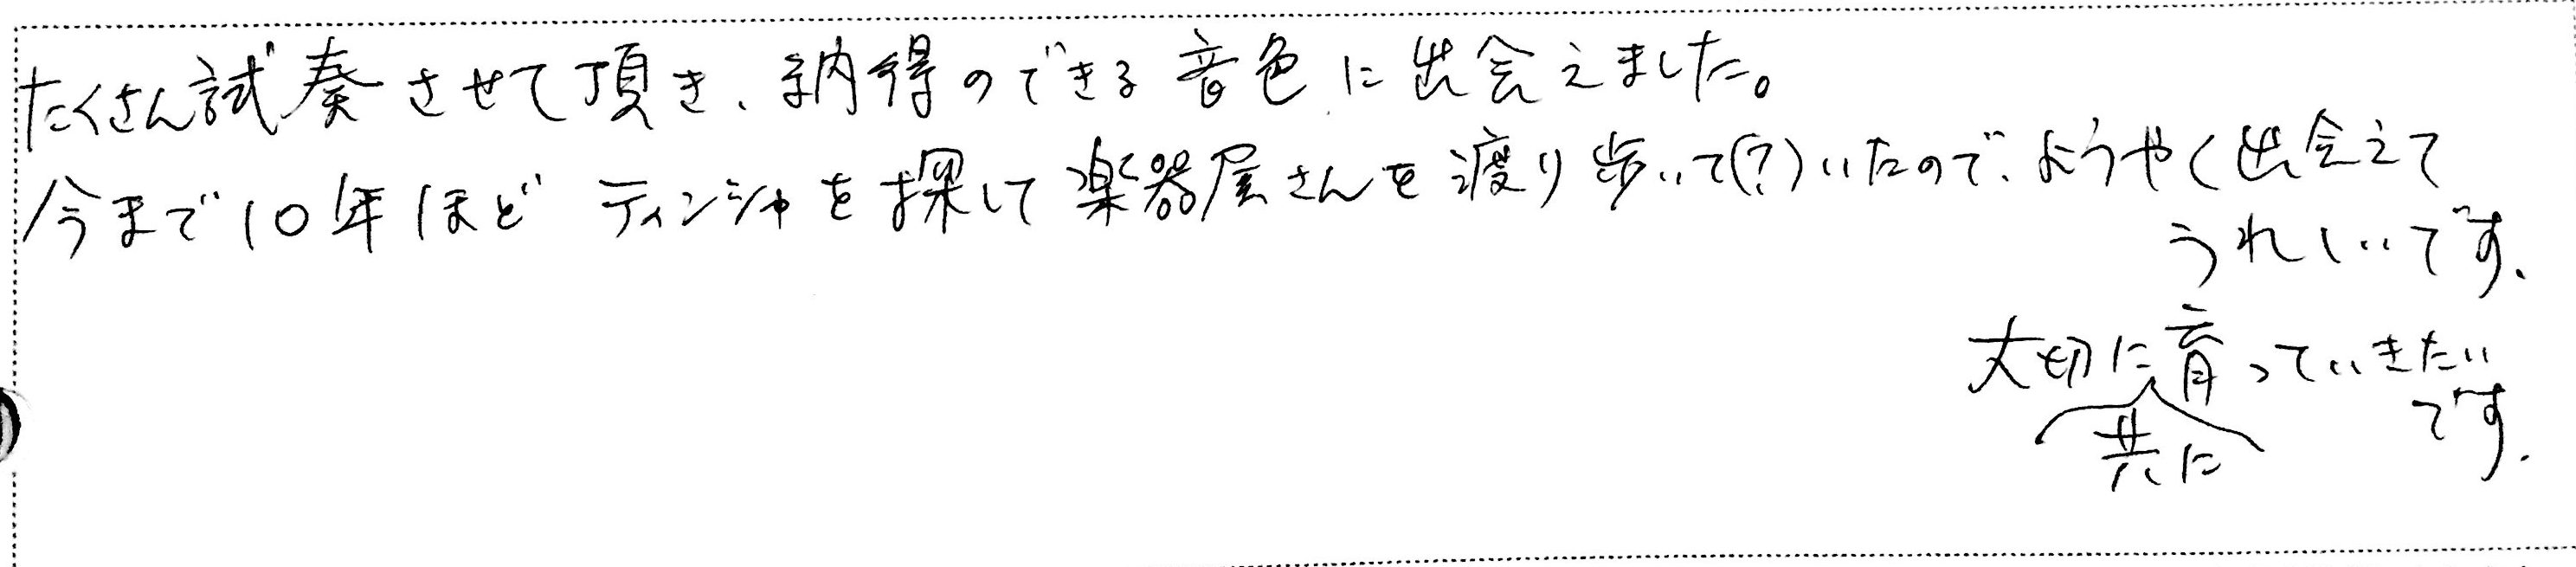 たくさん試奏させて頂き、納得のできる音色に出会えました。
今まで10年ほど ティンシャを探して楽器屋さんを渡り歩いて(?)いたので、ようやく出会えて
うれしいです。
大切に育っていきたい
です。
共に